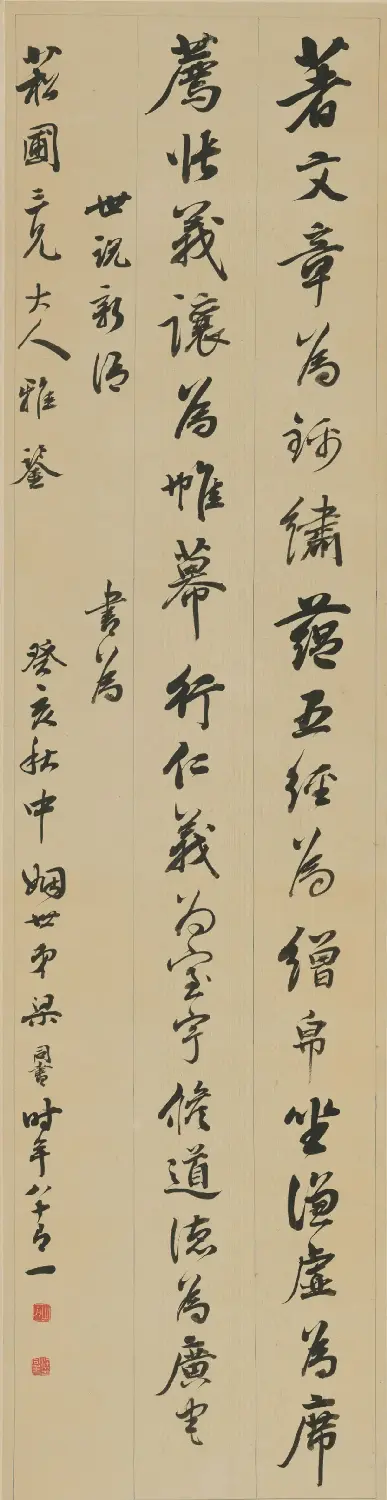 著文章為錦繡蘊五經為繒帛坐謙虛為席
薦張義讓為帷幕行仁義為室宇修道德為廣宅
世說新語 書為
菘圃三兄大人雅鑒 癸亥秋中姻世弟梁同書時年八十有一